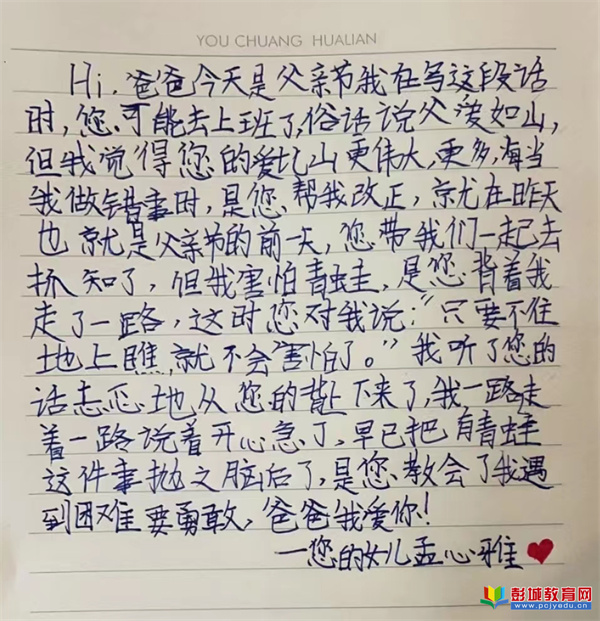 YOU CHUANG HUALIAN
Hi,爸爸今天是父亲节我在写这段话
时,您可能去上班了,俗话说父爱如山,
但我觉得您的爱比山更伟大,更多,每当
我做错事时,是您帮我改正,就在昨天
也就是父亲节的前一天,您带我们一起去
抓知了,但我害怕青蛙,是您背着我
走了一路,这时您对我说:“只要不往
地上瞧,就不会害怕了。”我听了您的
话忐忑地从您的背上下来了,我一路走
着一路说着开心急了,早已把有青蛙
这件事抛之脑后了,是您教会了我遇
到困难要勇敢,爸爸我爱你!
一您的女儿孟心雅
彭城教育网
www.pcjyedu.cn